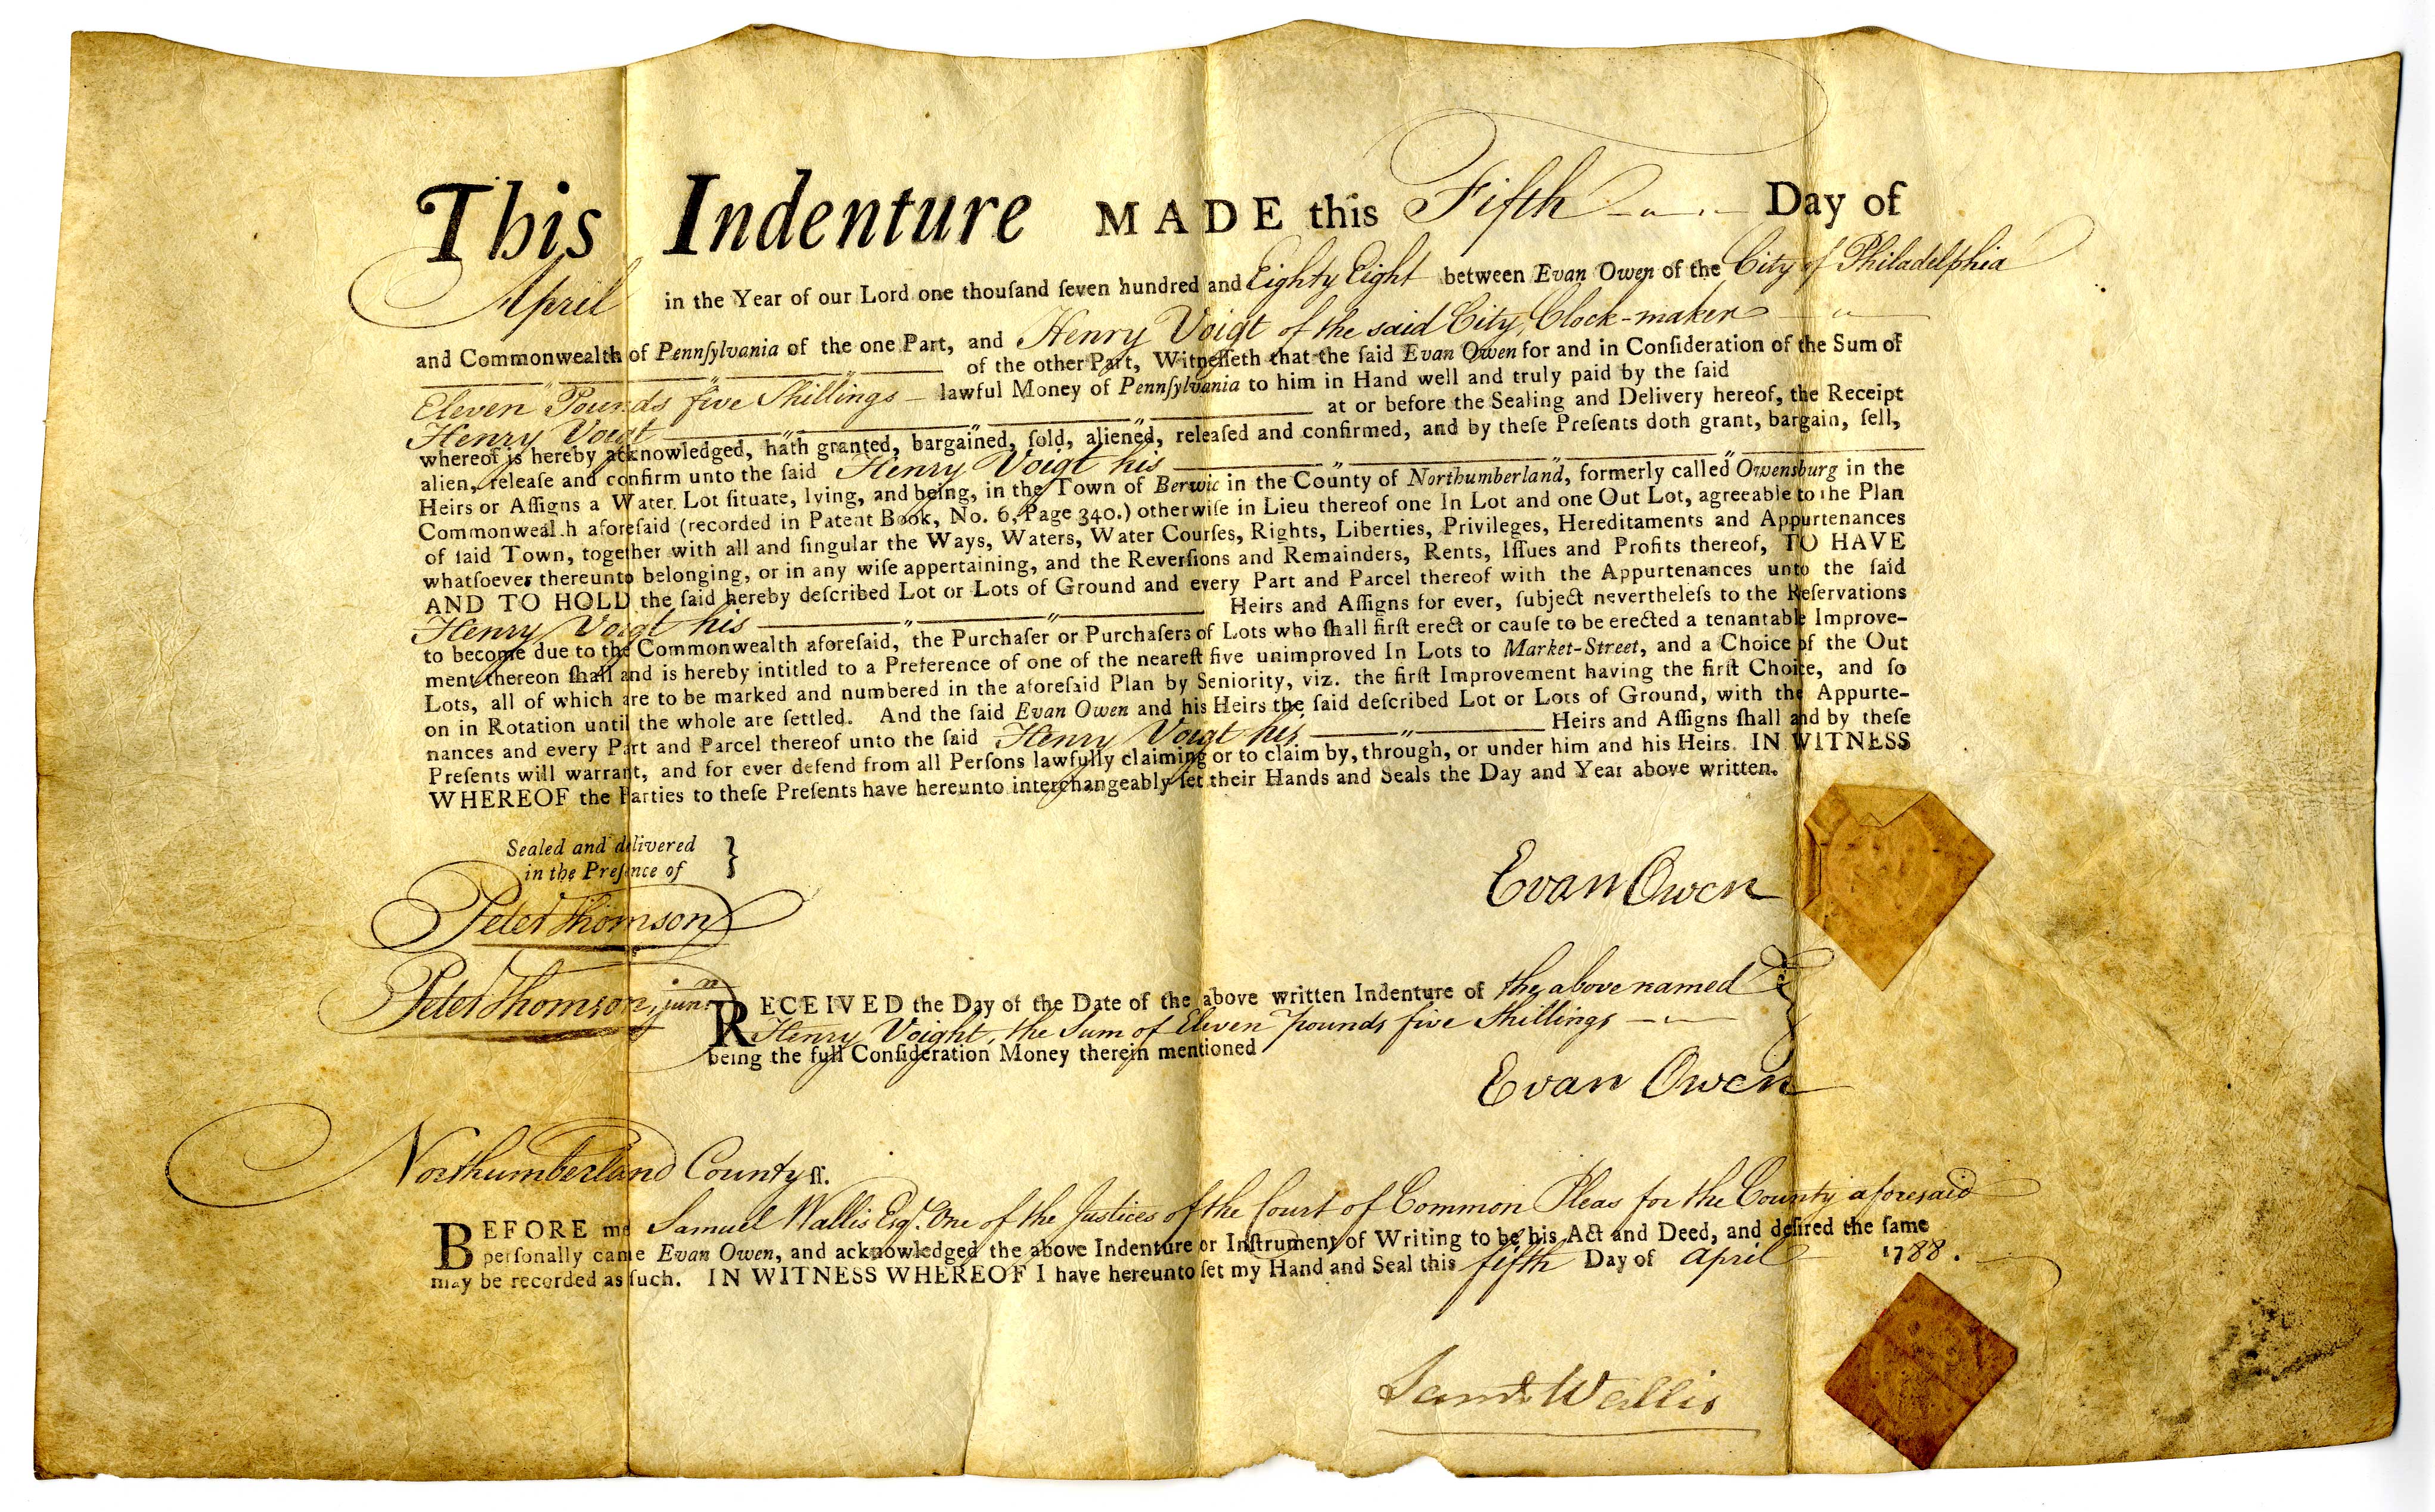 This Indenture MADE this Fifth Day of
April in the Year of our Lord one thouſand ſeven hundred and Eighty Eight between Evan Owen of the City of Philadelphia
and Commonwealth of Pennſylvania of the one Part, and Henry Voigt of the said City, Clock-maker
of the other Part, Witneſſeth that the ſaid Evan Owen for and in Conſideration of the Sum of
Eleven Pounds five Shillings lawful Money of Pennſylvania to him in Hand well and truly paid by the ſaid
Henry Voigt at or before the Sealing and Delivery hereof, the Receipt
whereof is hereby acknowledged, hath granted, bargained, ſold, aliened, releaſed and confirmed, and by theſe Preſents doth grant, bargain, ſell,
alien, releaſe and confirm unto the ſaid Henry Voigt his
Heirs or Aſſigns a Water Lot ſituate, lying, and being, in the Town of Berwic in the County of Northumberland, formerly called Owensburg in the
Commonweal.h aforeſaid (recorded in Patent Book, No. 6, Page 340.) otherwiſe in Lieu thereof one In Lot and one Out Lot, agreeable to the Plan
of ſaid Town, together with all and ſingular the Ways, Waters, Water Courſes, Rights, Liberties, Privileges, Hereditaments and Appurtenances
whatſoever thereunto belonging, or in any wiſe appertaining, and the Reverſions and Remainders, Rents, Iſſues and Profits thereof, TO HAVE
AND TO HOLD the ſaid hereby deſcribed Lot or Lots of Ground and every Part and Parcel thereof with the Appurtenances unto the ſaid
Henry Voigt his Heirs and Aſſigns for ever, ſubject nevertheleſs to the Reſervations
to become due to the Commonwealth aforeſaid, the Purchaſer or Purchaſers of Lots who ſhall firſt erect or cauſe to be erected a tenantable Improve-
ment thereon ſhall and is hereby intitled to a Preference of one of the neareſt five unimproved In Lots to Market-Street, and a Choice of the Out
Lots, all of which are to be marked and numbered in the aforeſaid Plan by Seniority, viz. the firſt Improvement having the firſt Choice, and ſo
on in Rotation until the whole are ſettled. And the ſaid Evan Owen and his Heirs the ſaid deſcribed Lot or Lots of Ground, with the Appurte-
nances and every Part and Parcel thereof unto the ſaid Henry Voigt his Heirs and Aſſigns ſhall and by theſe
Preſents will warrant, and for ever defend from all Perſons lawfully claiming or to claim by, through, or under him and his Heirs. IN WITNESS
WHEREOF the Parties to theſe Preſents have hereunto interchangeably ſet their Hands and Seals the Day and Year above written.
Sealed and delivered
in the Preſence of }
Evan Owen
Peter Thomson
Peter Thomson, junr.
RECEIVED the Day of the Date of the above written Indenture of the above named
Henry Voight, the Sum of Eleven pounds five Shillings
being the full Conſideration Money therein mentioned
Evan Owen
Northumberland County ſſ.
BEFORE me Samuel Wallis Esqr. One of the Justices of the Court of Common Pleas for the County aforesaid
perſonally came Evan Owen, and acknowledged the above Indenture or Inſtrument of Writing to be his Act and Deed, and deſired the ſame
may be recorded as ſuch. IN WITNESS WHEREOF I have hereunto ſet my Hand and Seal this fifth Day of April 1788.
Saml Wallis